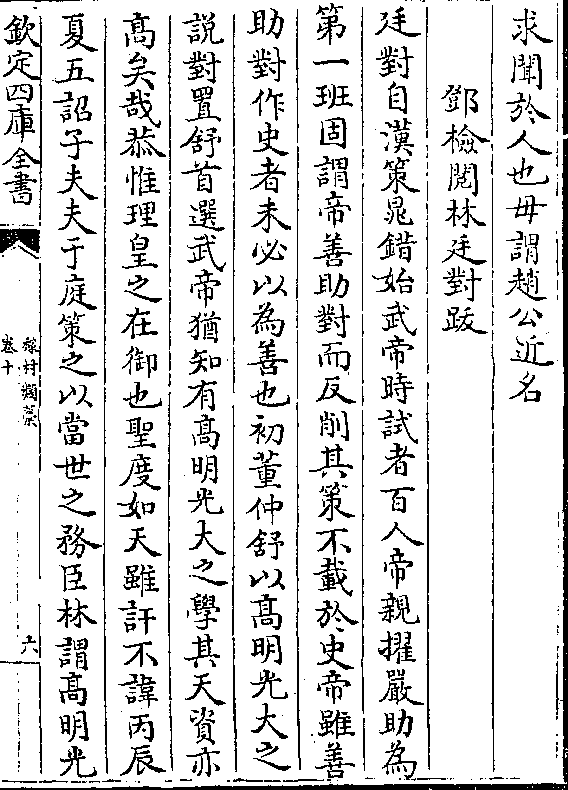 求聞於人也毋謂趙公近名
鄧檢閱林廷對跋
廷對自漢策晁錯始武帝時試者百人帝親擢嚴助為
第一班固謂帝善助對而反削其策不載於史帝雖善
助對作史者未必以為善也初董仲舒以髙明光大之
説對置舒首選武帝猶知有髙明光大之學其天資亦
髙矣哉恭惟理皇之在御也聖度如天雖訐不諱丙辰
夏五詔子夫夫于庭策之以當世之務臣林謂髙明光
欽定四庫全書
稼村類藁
卷十
六